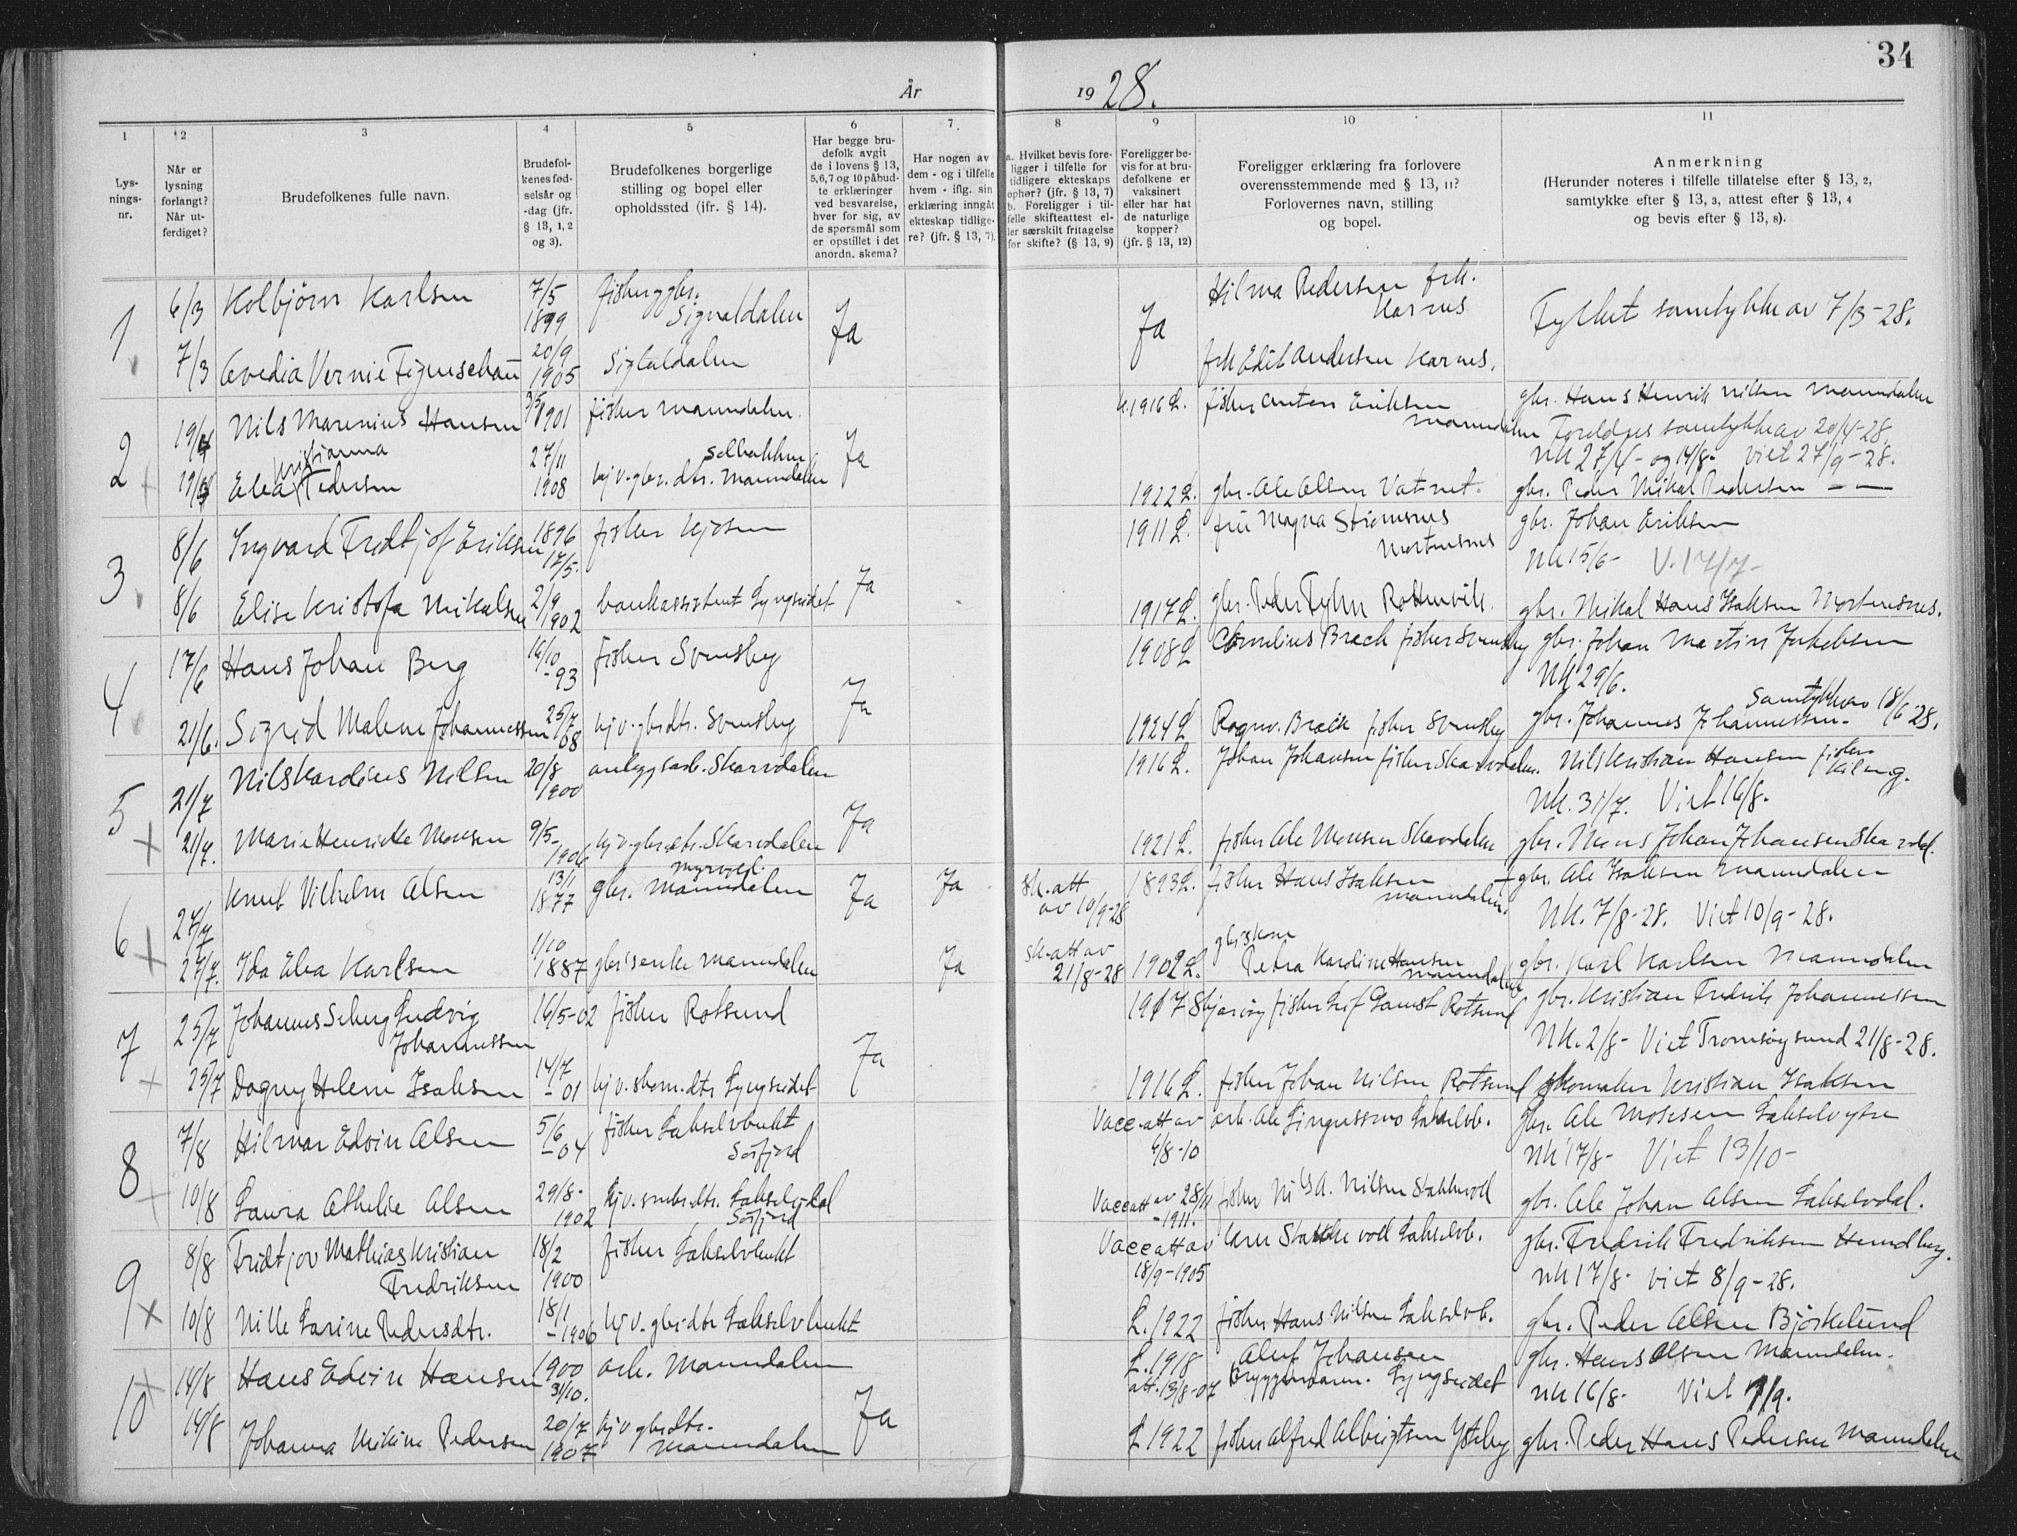 34
År 1928.
1
Lys-
nings-
nr.
2
Når er
lysning
forlangt?
Når ut-
ferdiget?
3
Brudefolkenes fulle navn.
4
Brudefol-
kenes fød-
selsår og
-dag (jfr.
§ 13, 1, 2
og 3).
5
Brudefolkenes borgerlige
stilling og bopel eller
opholdssted (jfr. § 14).
6
Har begge bru-
defolk avgit
de i lovens § 13,
5,6,7 og 10 påbud-
te erklæringer
ved besvarelse,
hver for sig, av
de spørsmål som
er opstillet i det
anordn. skema?
7
Har nogen av
dem - og i tilfelle
hvem - iflg. sin
erklæring inngåt
ekteskap tidlige-
re? (jfr. § 13, 7).
8
a. Hvilket bevis fore-
ligger i tilfelle for
tidligere ekteskaps
ophør? (jfr. § 13, 7)
b. Foreligger i til-
felle skifteattest el-
ler særskilt fritagelse
for skifte? (§ 13, 9)
9
Foreligger be-
vis for at bru-
defolkene er
vaksinert
eller har hat
de naturlige
kopper?
(jfr. § 13, 12)
10
Foreligger erklæring fra forlovere
overensstemmende med § 13, 11?
Forlovernes navn, stilling
og bopel.
11
Anmerkning
(Herunder noteres i tilfelle tillatelse efter § 13, 2,
samtykke efter § 13, 3, attest efter § 13, 4
og bevis efter § 13, 8).
1 6/3 Kolbjörn Karlsen 7/5 1899 fisker & gbr. Signaldalen Ja Ja Hilma Pedersen frk. Karnes Fylket samtykke av 7/3-28.
7/3 Vernie Figenschau 20/9 1905 Signaldalen frk Edit Andersen Karnes.
2 19/4 Nils Marenius Hansen 1901 fisker Manndalen. Ja 1916 L. fisker Anton Eriksen Manndalen gbr. Hans Henrik Nilsen Manndalen
Foreldres samtykke av 20/4-28.
Nk 27/4 - og 14/8- viet 27/9-28.
19/4 Elea Kristianna Pedersen 27/11 1908 hj.v. gbr.dtr. Solbakken Manndalen 1922 L. gbr. Ole Olsen Vatnet. gbr. Peder Mikal Pedersen
3 8/6 Ingvard Fridtjof Eriksen 1896 17/5. fisker Kjosen Ja 1911 L. fru Magna Strømsnes Mortensnes gbr. Johan Eriksen
Nk 15/6- V. 17/7-
8/6 Elise Kristofa Mikalsen 2/9 1902 bankassistent Lyngseidet 1917 L. gbr. Peder Fyhn Rottenvik. gbr. Mikal Hans Isaksen Mortensnes.
4 17/6 Hans Johan Berg 16/10 -93 fisker Svensby Ja 1908 L Cornelius Bræck fisker Svensby gbr. Johan Martin Jakobsen
Nk 29/6.
21/6. Sigrid Malene Johannessen 25/7 08 hj.v. gbrdtr. Svensby 1924 L Ragnv. Bræck fisker Svensby gbr. Johannes Johannessen. Samtykke av 18/6-28.
5 21/7 Nils Kardius Nilsen 20/8 1900 anleggsarb. Skardalen Ja 1916 L. Johan Johansen fisker Skardalen. Nils Kristian Hansen fisker
Nk. 31/7. Viet 16/8.
21/7. Marie Henrikke Monsen 9/5- 1906 hj.v. gbr.dtr. Skardalen 1921 L. fisker Ole Monsen Skardalen gbr. Mons Johan Johansen Skardal.
6 27/7 Knut Vilhelm Olsen 13/1 1877 gbr. Myrvold Manndalen Ja Ja Sk.att av 10/9-28 1893 L. fisker Hans Isaksen Manndalen. gbr. Ole Isaksen Manndalen
Nk. 7/8-28. Viet 10/9-28.
27/7. Ida Elea Karlsen 1/10 1887 gbr's enke Manndalen Ja Sk.att av 21/8-28 1902 L. gbrskone Petra Kardine Hansen Manndalen gbr. Karl Karlsen Manndalen
7 25/7 Johannes Selmer Ludvig Johannessen 16/5-02 fisker Rotsund Ja 1917 Skjervøy fisker Leif Gamst Rotsund gbr. Kristian Fredrik Johannessen
Nk. 2/8- Viet Tromsøysund 21/8-28.
25/7 Dagny Helene Isaksen 14/7 -01 hj.v. skom.dtr Lyngseidet 1916 L. fisker Johan Nilsen Rotsund skomaker Kristian Isaksen
8 7/8 Hilmar Edvin Olsen 5/6 -04 fisker Lakselvbukt Sørfjord Vacc.att av 6/8-10 arb. Ole Lakselvb. gbr. Ole Mosesen
Nk 17/8- Viet 13/10-
10/8 Laura Athelie Olsen 29/8- 1902 hj.v. dtr. Lakselvdal Sørfjord Vacc att av 28/11 -1911. fisker Nils A. Nilsen Stakkevoll gbr. Ole Johan Olsen Lakselvdal.
9 8/8 Fridtjov Mathias Kristian Fredriksen 18/2 1900 fisker Lakselvbukt Vacc att av 18/9-1905 Stakkevoll Lakselvb. gbr. Fredrik Fredriksen
Nk 17/8- viet 8/9-28.
10/8 Nille Larine Pedersdtr. 18/1 -1906 hj.v. gbrdtr Lakselvbukt L. 1922 fisker Hans Nilsen Lakselvb. gbr. Peder Olsen Bjørkelund
10 14/8 Hans Edvin Hansen 1900 3/10. arb. Manndalen Ja L. 1918 att. 13/8-07 Oluf Johansen Lyngseidet gbr. Hans Olsen Manndalen.
Nk 16/8- Viet 7/9.
14/8 Johanna Nikine Pedersen 20/7 1907 hj.v. gbrdtr. Manndalen L 1922 fisker Alfred Albrigtsen Ysteby gbr. Peder Hans Pedersen Manndalen